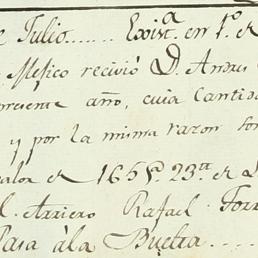 e Julio...... Exist.ª en 1.º de
Mexico recivió D. Andres
presente año, cuia Cantid
y por la misma razon son
valor de 165 p.s 23 m.s de
l Arriero Rafael Torr
Pasa à la Buelta....